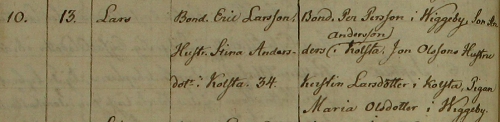 10. 13. Lars Bond. Eric Larsson. Bond. Per Persson i Wiggeby, Jon An
andersson
Hustr. Stina Anders- ders (i Kolsta. Jon Olssons Hustru
dotr i Kolsta. 34. Kerstin Larsdotter i Kolsta, Pigan
Maria Olsdotter i Wiggeby.